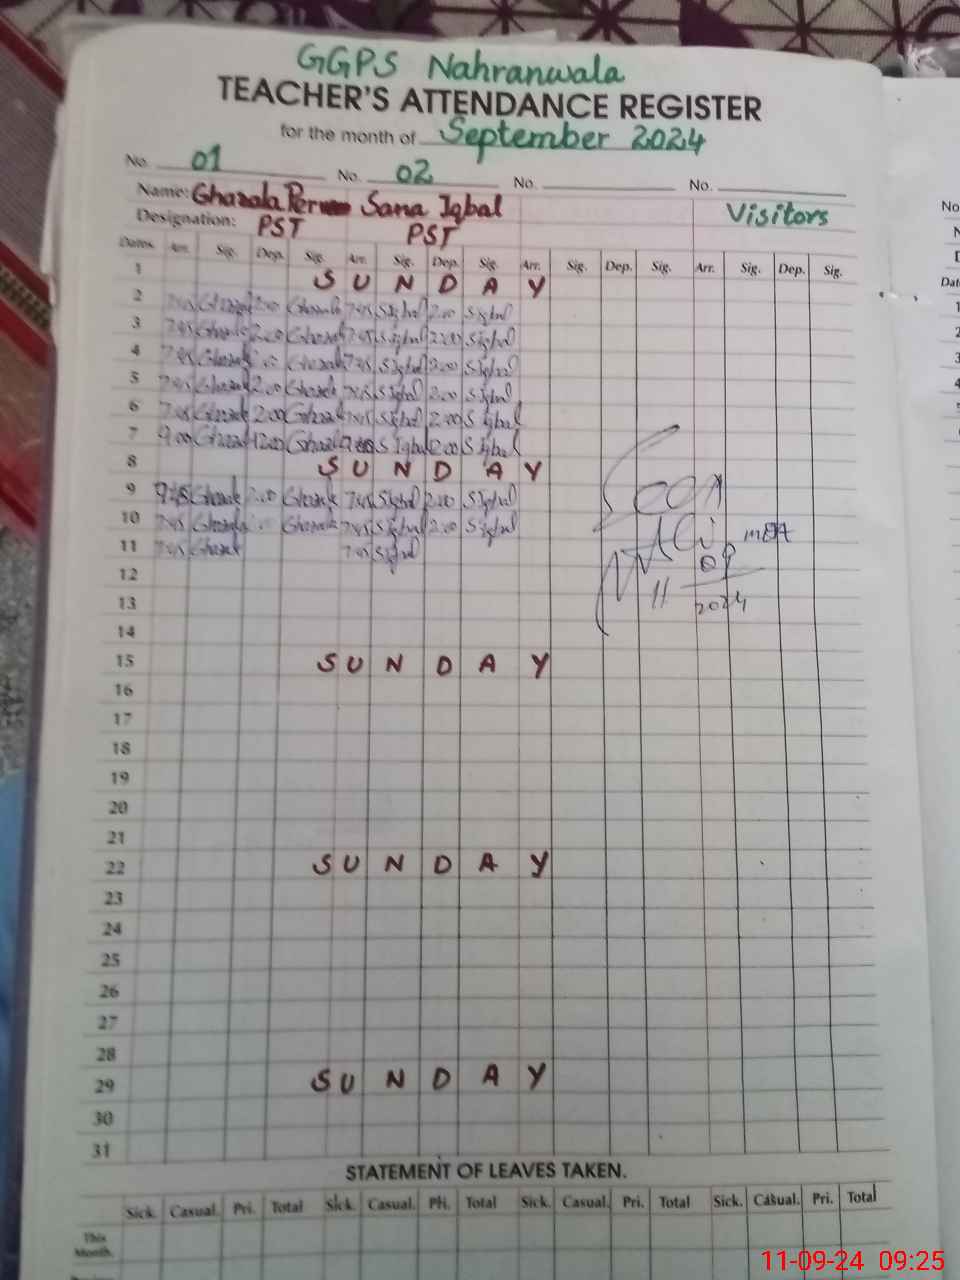 GGPS Nahranwala
TEACHER'S ATTENDANCE REGISTER
for the month of September 2024
No. 01 No. 02 No. No.
Name: Ghazala Sana Iqbal Visitors
Designation: PST PST
Dates Arr. Sig. Dep. Sig. Arr. Sig. Dep. Sig. Arr. Sig. Dep. Sig. Arr. Sig. Dep. Sig.
1 SUNDAY
2 7:45 2:00 7:45 S Iqbal 2:00 S Iqbal
3 7:45 2:00 7:45 S Iqbal 2:00 S Iqbal
4 7:45 7:45 S Iqbal 2:00 S Iqbal
5 7:45 2:00 7:45 S Iqbal 2:00 S Iqbal
6 7:45 2:00 7:45 S Iqbal 2:00 S Iqbal
7 9:00 12:00 S Iqbal 12:00 S Iqbal
8 SUNDAY
9 2:00 7:45 S Iqbal 2:00 S Iqbal
10 7:45 7:45 S Iqbal 2:00 S Iqbal
11 7:45 7:45 S Iqbal
Seen
MEA
11 09
2024
12
13
14
15 SUNDAY
16
17
18
19
20
21
22 SUNDAY
23
24
25
26
27
28
29 SUNDAY
30
31
STATEMENT OF LEAVES TAKEN.
Sick. Casual. Pri. Total Sick. Casual. Pri. Total Sick. Casual. Pri. Total Sick. Casual. Pri. Total
This
Month.
11-09-24 09:25